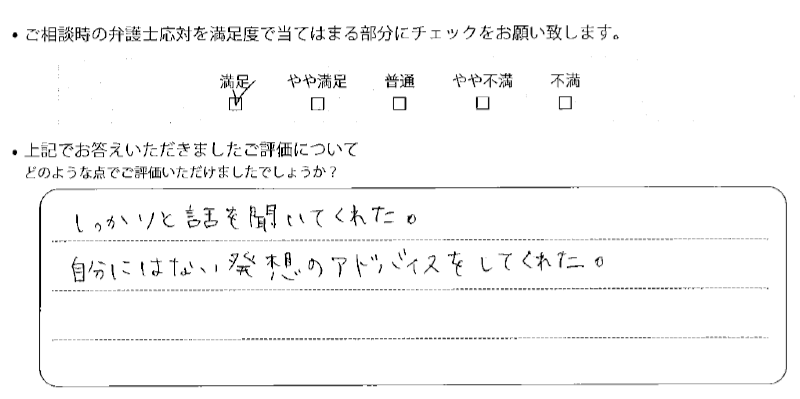 ・ご相談時の弁護士応対を満足度で当てはまる部分にチェックをお願い致します。
満足 やや満足 普通 やや不満 不満
☑ □ □ □ □
・上記でお答えいただきましたご評価について
どのような点でご評価いただけましたでしょうか？
しっかりと話を聞いてくれた。
自分にはない発想のアドバイスをしてくれた。